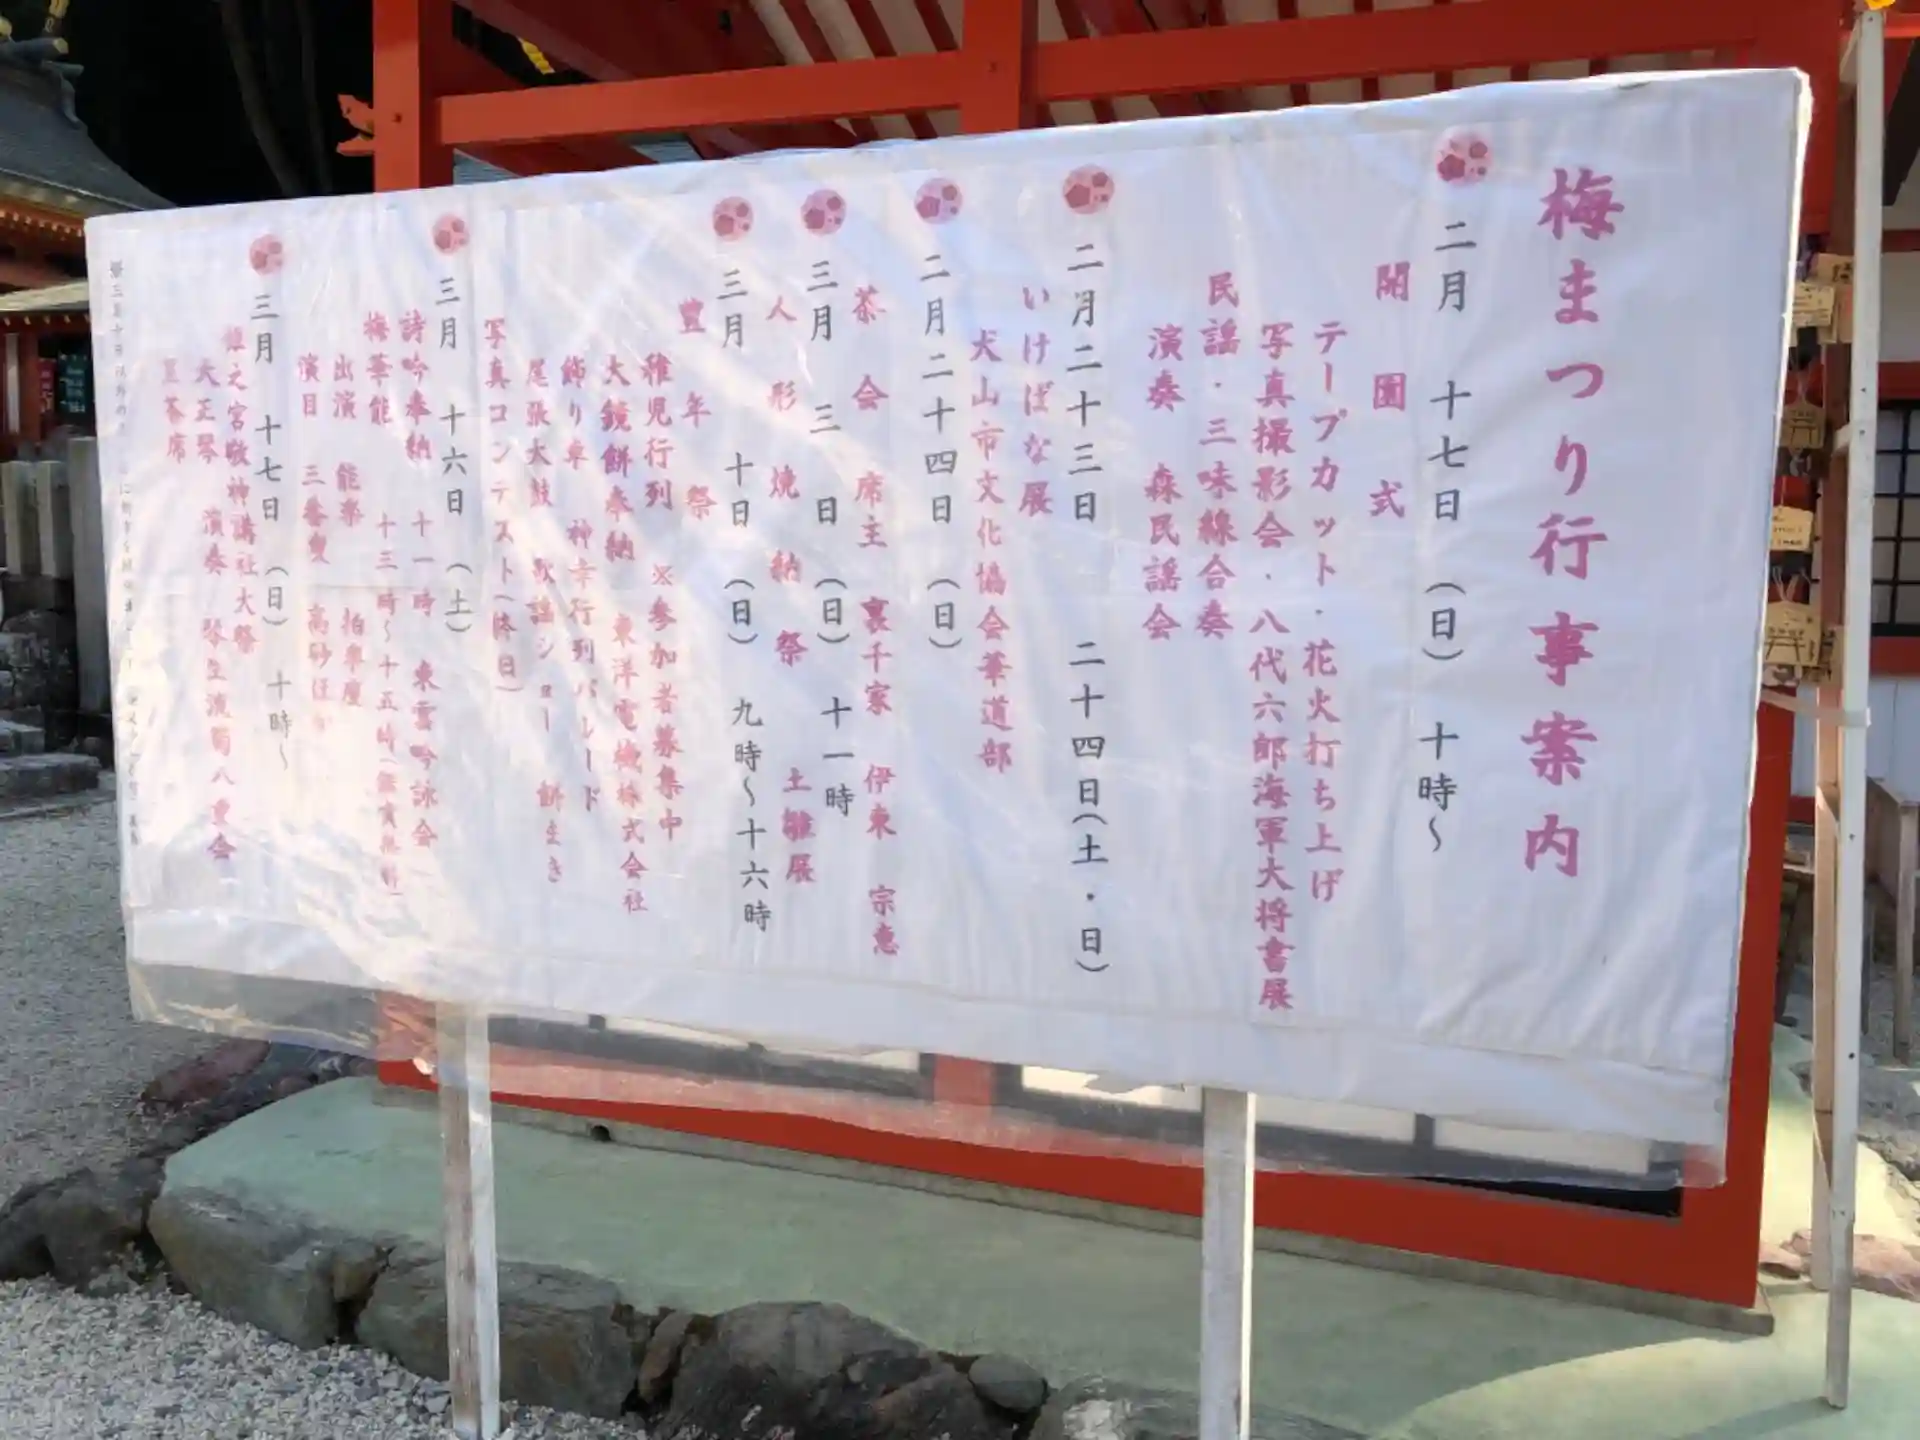 梅まつり行事案内
二月 十七日（日） 十時～
開園式
テープカット・花火打ち上げ
写真撮影会・八代六郎海軍大将書展
民謡・三味線合奏
演奏 森民謡会
二月二十三日 二十四日（土・日）
いけばな展
犬山市文化協会華道部
二月二十四日（日）
茶会 席主 裏千家 伊東 宗恵
三月 三日（日） 十一時
人形焼納祭 土雛展
三月 十日（日） 九時～十六時
豊年祭
稚児行列 ※参加者募集中
大鏡餅奉納 東洋電機株式会社
飾り車 神幸行列パレード
尾張太鼓 歌謡ショー 餅まき
写真コンテスト（終日）
三月 十六日（土）
詩吟奉納 十一時 東雲吟詠会
梅華能 十三時～十五時（鑑賞無料）
出演 能楽
演目 三番叟 高砂ほか
三月 十七日（日） 十時～
姫之宮敬神講社大祭
大正琴 演奏 琴生流菊八重会
呈茶席